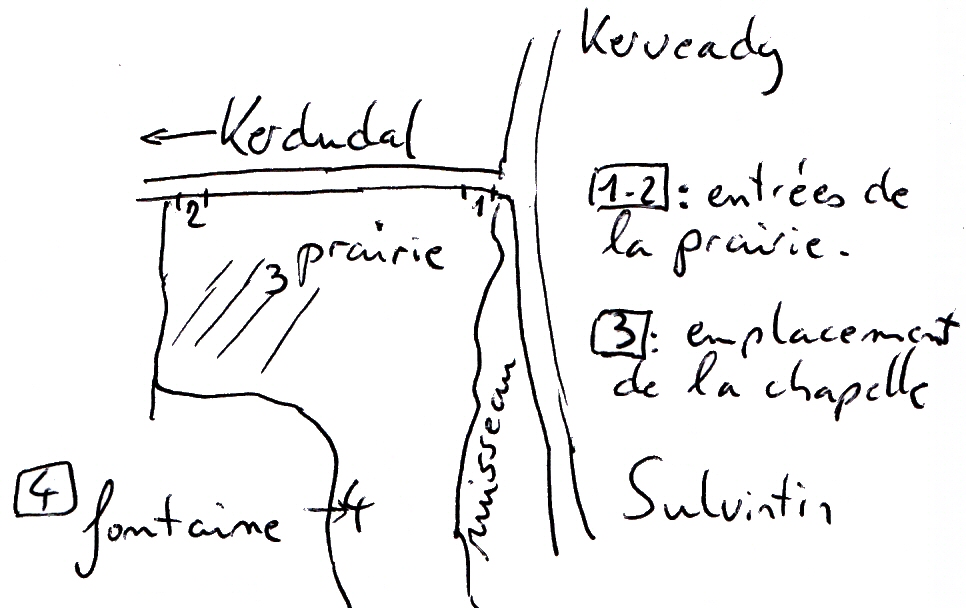 Kerveady
← Kerdudal
2
1
1-2 : entrées de
la prairie.
3 prairie
3 : emplacement
de la chapelle
ruisseau
4 fontaine → 4
Sulvintin